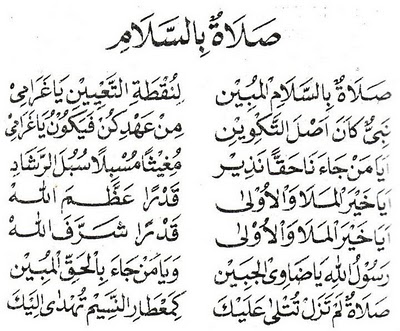 صَلَاةٌ بِالسَّلَامِ
صَلَاةٌ بِالسَّلَامِ المُبِيْنِ لِنُقْطَةِ التَّعْيِيْنِ يَاغَرَامِيْ
نَبِيٌّ كَانَ اَصْلَ التَّكْوِيْنِ مِنْ عَهْدِكُنْ فَيَكُوْنُ يَاغَرَامِيْ
اَيَامَنْ جَاءَنَا حَقًّا نَذِيْر مُغِيْثًا مُسْبِلًا سُبُلَ الرَّشَادِ
اَيَاخَيْرَ المَلَا وَالْاُوْلٰى قَدْرًا عَظَّمَ اللهْ
اَيَاخَيْرَ المَلَا وَالْاُوْلٰى قَدْرًا شَرَّفَ اللهْ
رَسُوْلُ اللهِ يَاضَاوِى الْجَبِيْنِ وَيَامَنْ جَاءَ بِالْحَقِّ الْمُبِيْنِ
صَلَاةٌ لَمْ تَزَلْ تُتْلٰى عَلَيْكَ كَمِعْطَارِ النَّسِيْمِ تُهْدٰى اِلَيْكَ